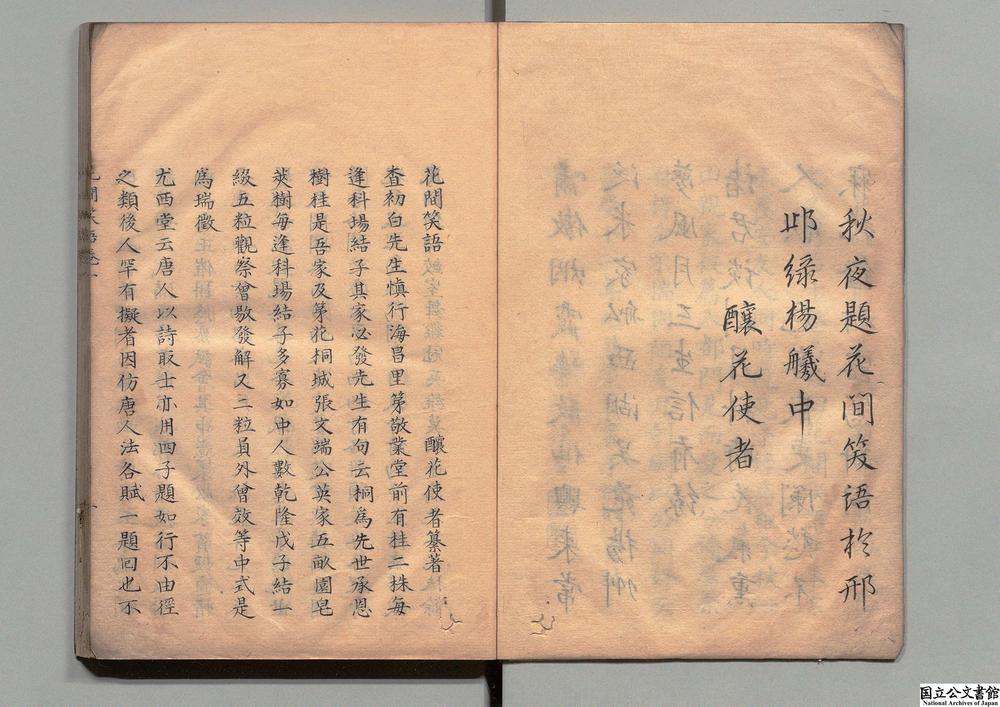 秋夜題花間笑語於邢
邙綠楊艤中
釀花使者
花間笑語
釀花使者纂著
查初白先生慎行海昌里第敬業堂前有桂二株每
逢科場結子其家必發先生有句云桐爲先世承恩
樹桂是吾家及第花桐城張文端公英家五畝園皂
莢樹每逢科場結子多寡如中人數乾隆戊子結一
綴五粒觀察曾敭發解又二粒員外曾效等中式是
爲瑞徵
尤西堂云唐人以詩取士亦用四子題如行不由徑
之類後人罕有擬者因仿唐人法各賦一題回也不
国立公文書館
National Archives of Japan